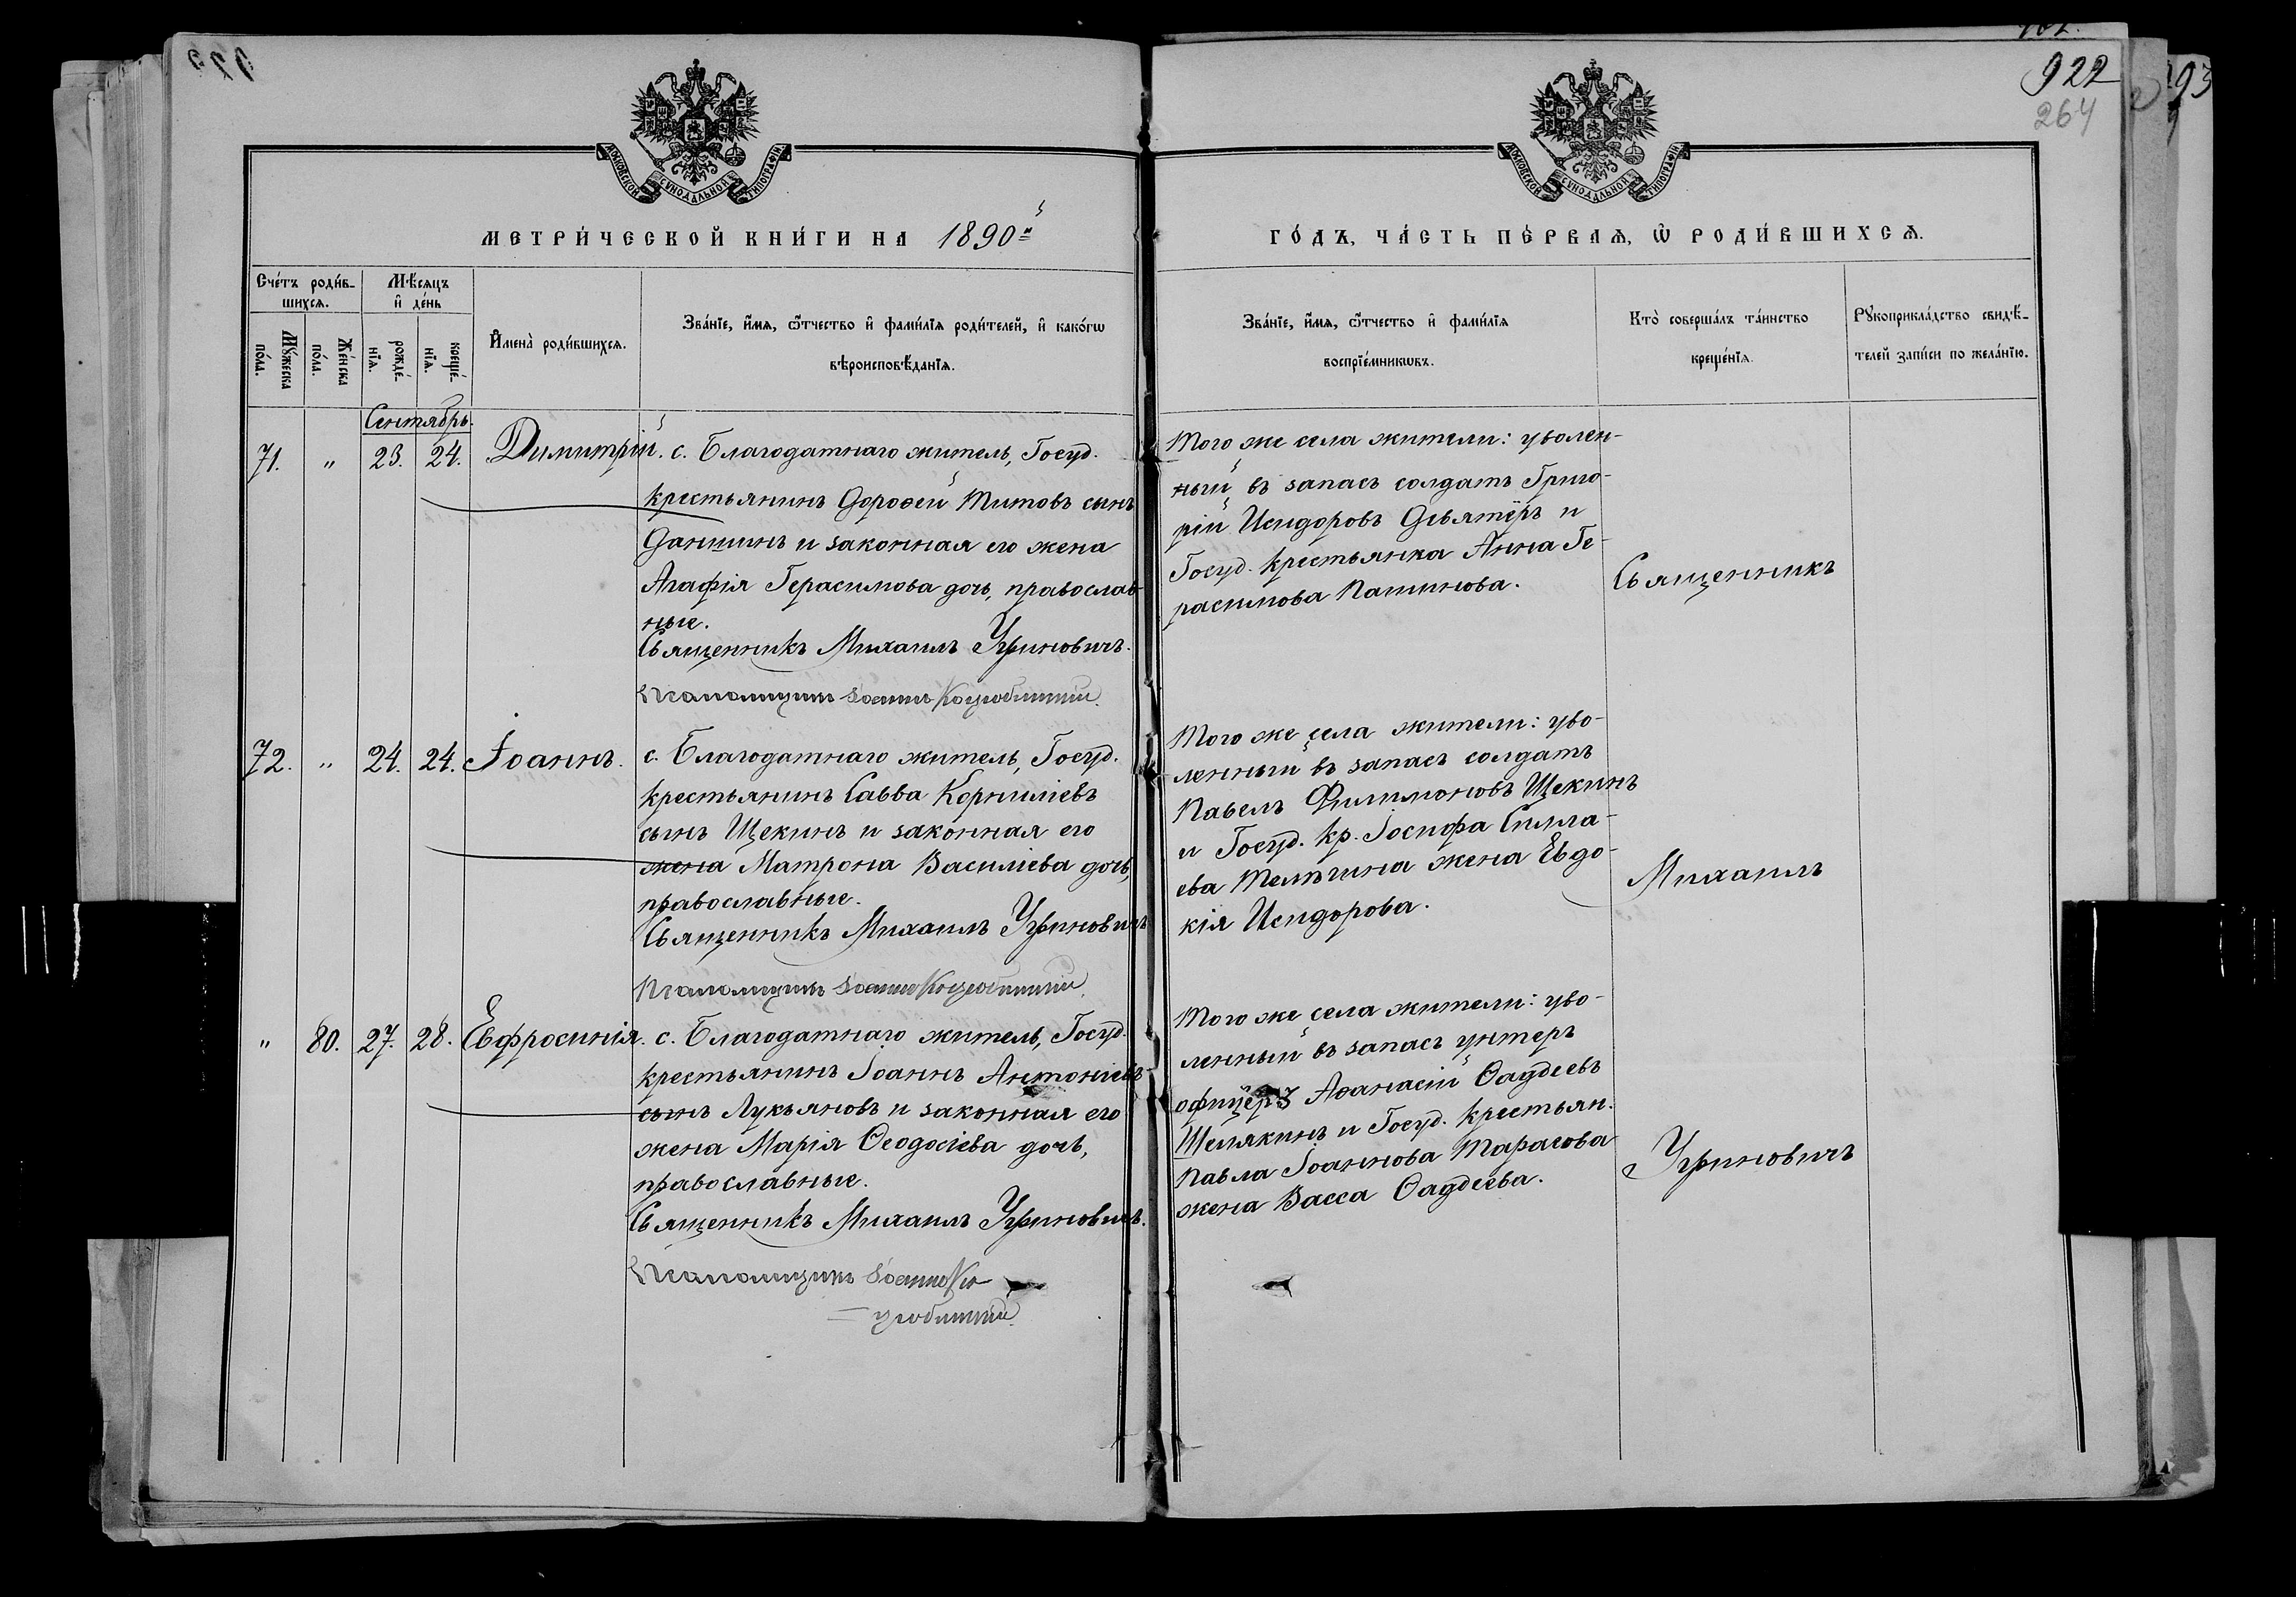 922
264
МОСКОВСКОЙ СѴНОДАЛЬНОЙ ТИПОГРАФІИ
МОСКОВСКОЙ СѴНОДАЛЬНОЙ ТИПОГРАФІИ
МЕТРИ́ЧЕСКОЙ КНИ́ГИ НА 1890й
ГО́ДЪ, ЧА́СТЬ ПЕ́РВАѦ, Ѡ҆ РОДИ́ВШИХСѦ.
Сче́тъ роди́в-
шихсѧ.
Мꙋ́жеска по́ла.
Же́нска по́ла.
Мѣ́сѧцъ
и҆ де́нь
рожде́-
нїѧ.
креще́-
нїѧ.
И҆мена̀ роди́вшихсѧ.
Зва́нїе, и҆́мѧ, ѻ҆́тчество и҆ фами́лїѧ роди́телей, и҆ како́гѡ
вѣроисповѣ́данїѧ.
Зва́нїе, и҆́мѧ, ѻ҆́тчество и҆ фами́лїѧ
воспрїе́мникѡвъ.
Кто̀ соверша́лъ та́инство
креще́нїѧ.
Рꙋкоприкла́дство свидѣ́-
телей за́писи по жела́нїю.
Сентябрь.
71. " 23. 24. Димитрій. с. Благодатнаго житель, Госуд.
крестьянинъ Дороѳей Титовъ сынъ
Даншинъ и законная его жена
Агафія Герасимова дочь, православ-
ные.
Священникъ Михаилъ Угриновичъ.
Псаломщикъ Іоаннъ
Того же села жители: уволен-
ный въ запасъ солдатъ Григо-
рій Исидоровъ Девятёръ и
Госуд. крестьянка Анна Ге-
расимова Пашинова.
Священникъ
72. " 24. 24. Іоаннъ. с. Благодатнаго житель, Госуд.
крестьянинъ Савва Корниліевъ
сынъ Щекинъ и законная его
жена Матрона Василіева дочь,
православные.
Священникъ Михаилъ Угриновичъ
Псаломщикъ Іоаннъ
Того же села жители: уво-
ленный въ запасъ солдатъ
Павелъ Филимоновъ Щекинъ
и Госуд. кр. Іосифа Силла-
ева жена Евдо-
кія Исидорова.
Михаилъ
" 80. 27. 28. Евфросинія. с. Благодатнаго житель, Госуд.
крестьянинъ Іоаннъ Антоніевъ
сынъ Лукьяновъ и законная его
жена Марія Ѳеодосіева дочь,
православные.
Священникъ Михаилъ Угриновичъ.
Псаломщикъ Іоаннъ
Того же села жители: уво-
ленный въ запасъ унтеръ
офицеръ Аѳанасій Ѳаддеевъ
Шелякинъ и Госуд. крестьян.
Павла Іоаннова Тарасова
жена Васса Ѳаддеева.
Угриновичъ